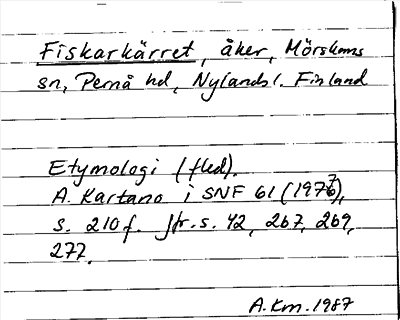 Fiskarkärret, åker, Mörskoms
sn, Pernå hd, Nylands l. Finland
Etymologi (fled).
A. Kartano i SNF 61 (1977),
s. 210 f. Jfr. s. 42, 267, 269,
277.
A.Km. 1987